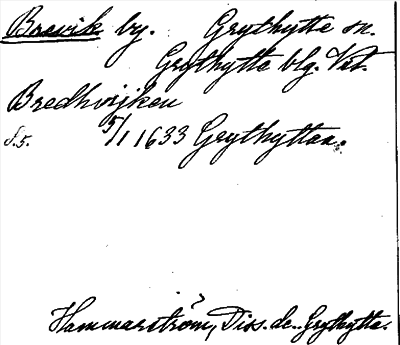 Brevik by. Grythytte sn.
Grythytte blg. Vst.
Bredhvijken
s. 5. 5/1 1633 Grythyttan.
Hammarström, Diss. de Grythytta.